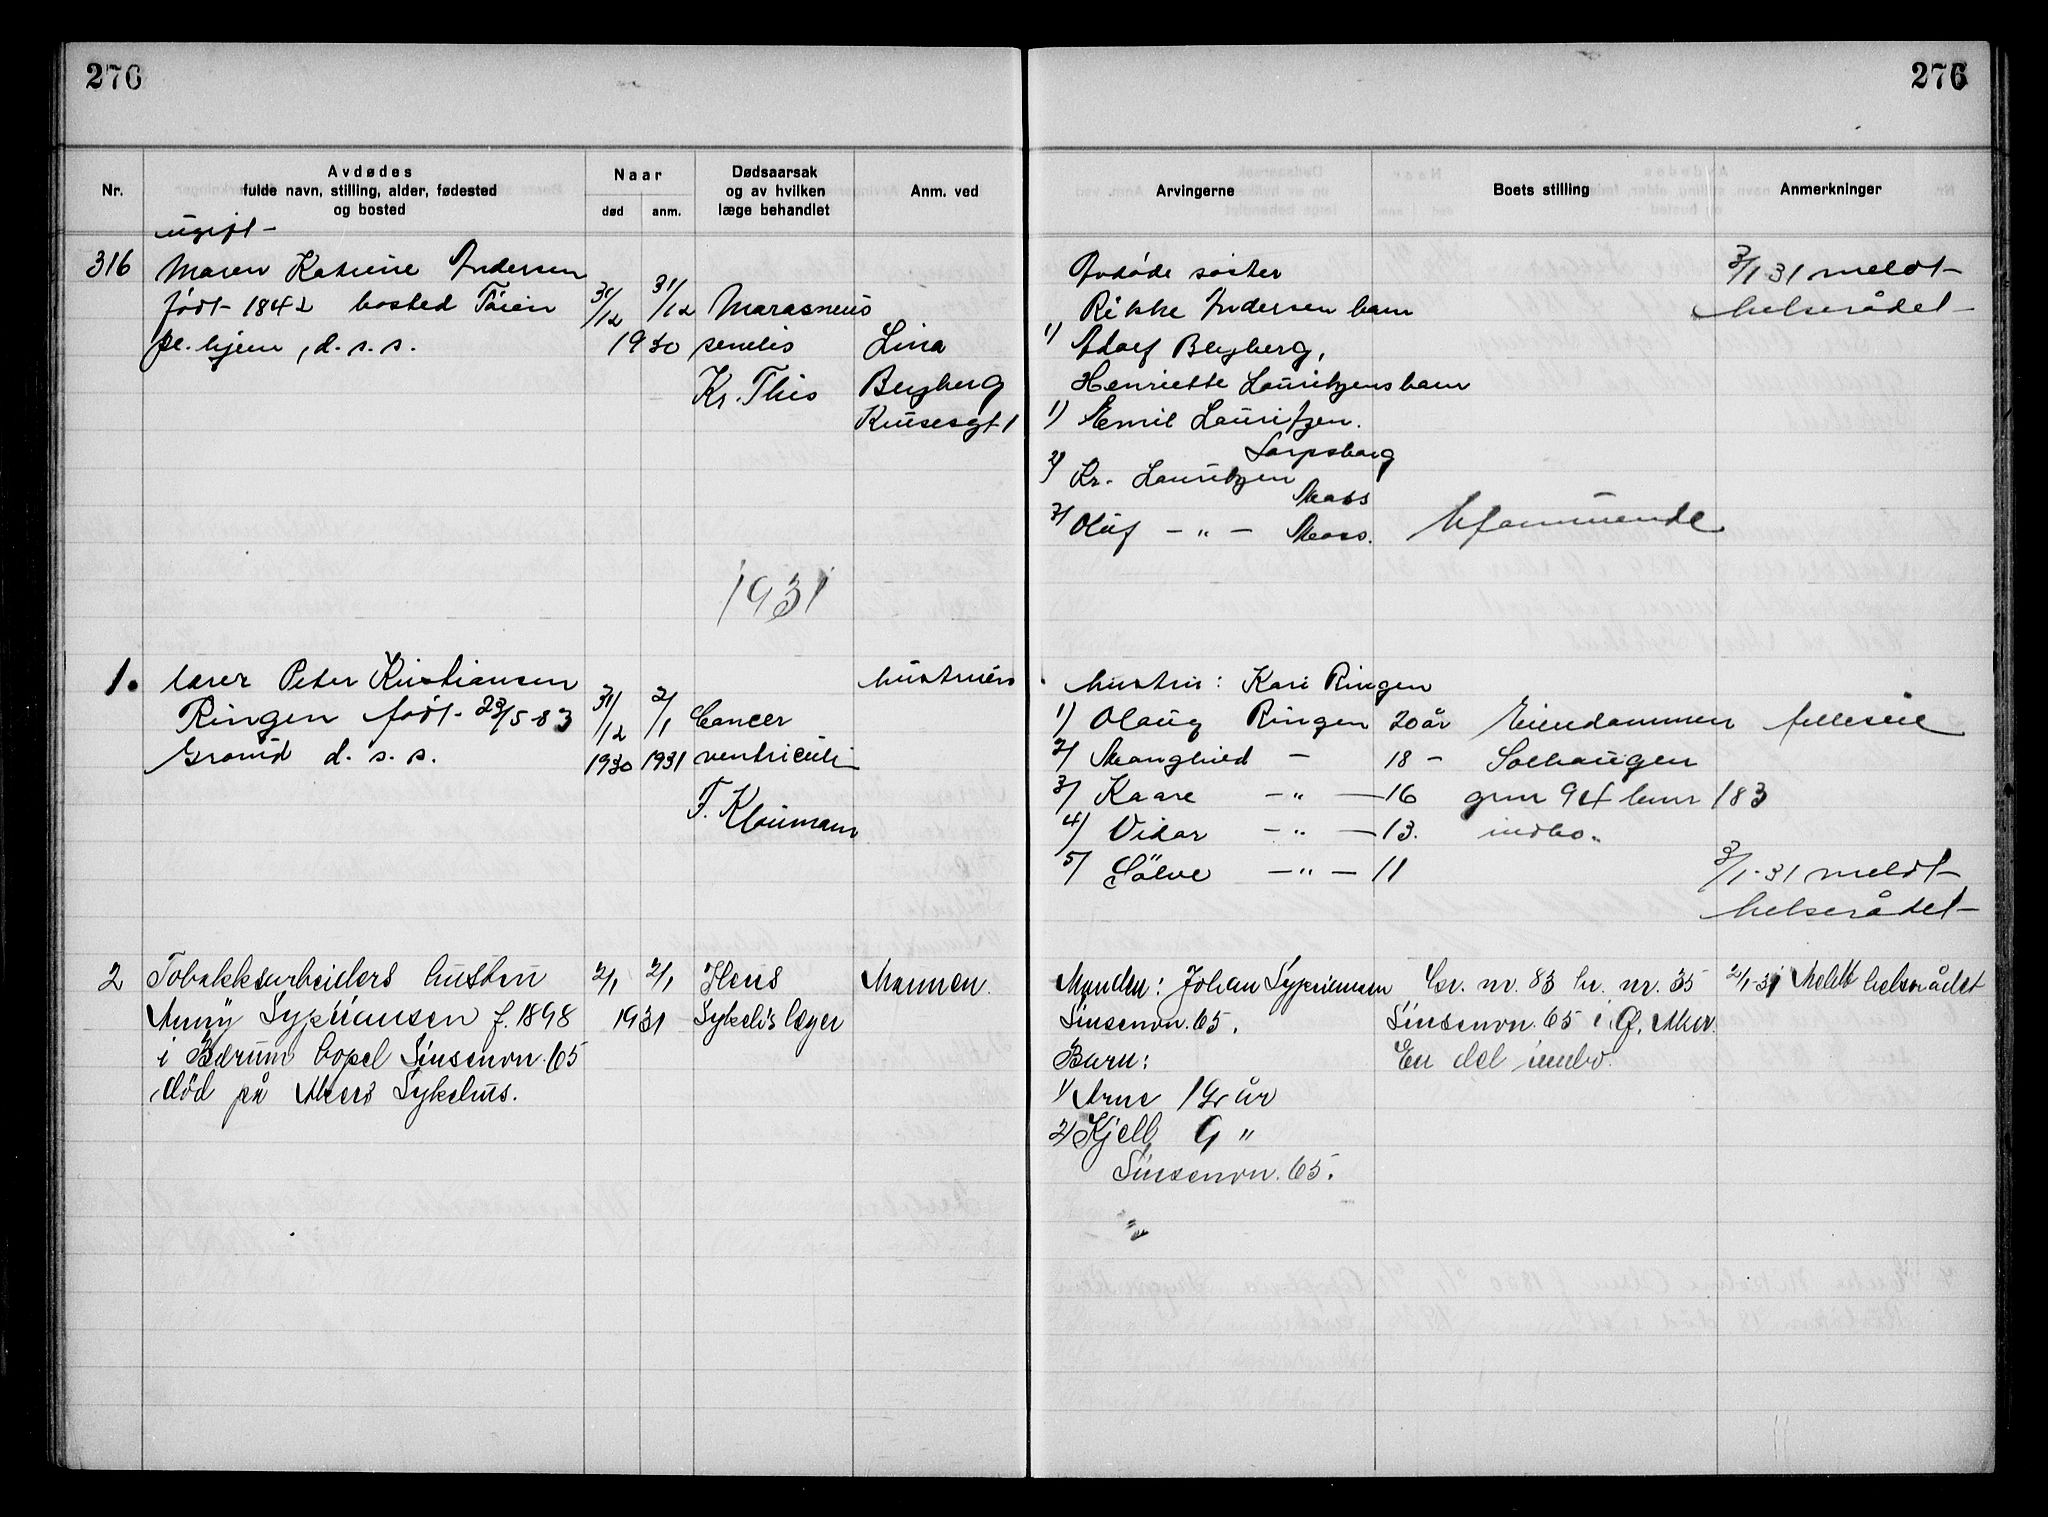 276
276
Nr.
Avdødes
fulde navn, stilling, alder, fødested
og bosted
Naar
død
anm.
Dødsaarsak
og av hvilken
læge behandlet
Anm. ved
Arvingerne
Boets stilling
Anmerkninger
ugift
316
Maren Katrine Andersen
født 1842 bosted Tøien
pl. hjem, d. s. s.
31/12
31/12
1930
Marasmus
senilis
Kr. This
Lina
Bergberg
Avdøde søster
Rikke Andersen barn
1) Adolf Bergberg,
Henriette Lauritzens barn
1) Emil Lauritzen.
Sarpsborg
2) Kr. Lauritzen
Moss
3) Oluf - " - Moss.
Uformuende
3/1 31 meldt
helserådet
1931
1.
lærer Peter Kristiansen
Ringen født 23/5 83
Grorud d. s. s.
31/12
2/1
1930
1931
Cancer
ventriculi
F. Klaumann
hustruen
hustru: Kari Ringen
1) Olaug Ringen 20 år
2) Manghild - 18 -
3) Kaare - " - 16
4) Vidar - " - 13.
5) Sölve - " - 11
Eiendommen
Solhaugen
gnr 94 bnr 183
indbo.
felleseie
3/1-31 meldt
helserådet
2
Tobakksarbeiders hustru
Anny Sypriansen f. 1898
i Bærum bopel Sinsenvn. 65
död på Akers Sykehus.
2/1
2/1
1931
Ileus
Sykeh's læger
Mannen.
Manden: Johan Syprianssen
Sinsenvn. 65.
Barn:
1) Arne 12 år
2) Kjell 9 "
Sinsenvn. 65.
Gr. nr. 83 br. nr. 35
Sinsenvn. 65 i Ø. Aker.
En del innbo.
2/1-31 Meldt helserådet